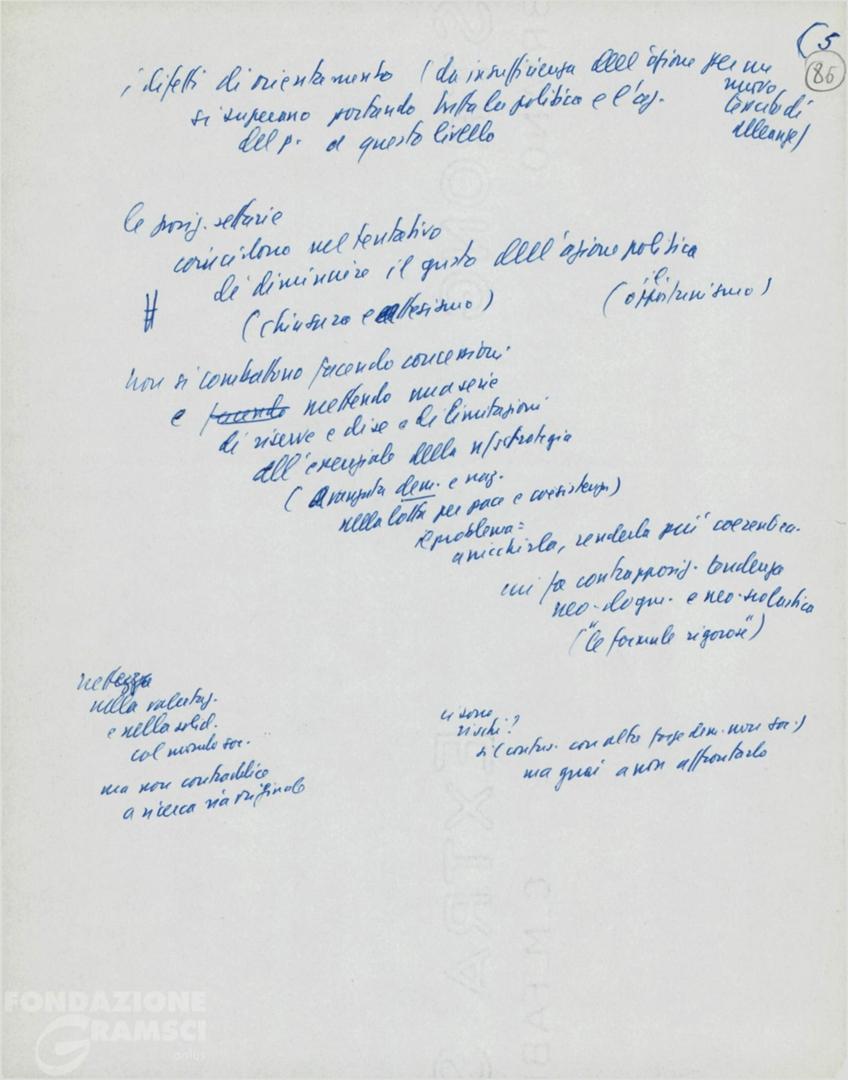 (5
86
i difetti di orientamento (da insufficienza dell'azione per un
nuovo
tessuto di
alleanze)
si superano portando tutta la politica e l'az.
del p. a questo livello
le posiz. settarie
coincidono nel tentativo
di diminuire il gusto dell'azione politica
(chiusura e attesismo)
(opportunismo)
non si combattono facendo concessioni
e facendo mettendo una serie
di riserve e di limitazioni
all'essenziale della n/strategia
(avanzata dem. e naz.
nella lotta per pace e coesistenza)
il problema =
arricchirla, renderla più coerente
cui fa contrapposiz. tendenza
neo-dogm. e neo-scolastica
("le formule rigorose")
nettezza
nella valutaz.
e nella solid.
col mondo soc.
ma non contraddice
a ricerca via originale
ci sono
rischi?
si (contus. con altre forze dem. non soc.)
ma guai a non affrontarlo
FONDAZIONE
GRAMSCI
onlus
EXTRA